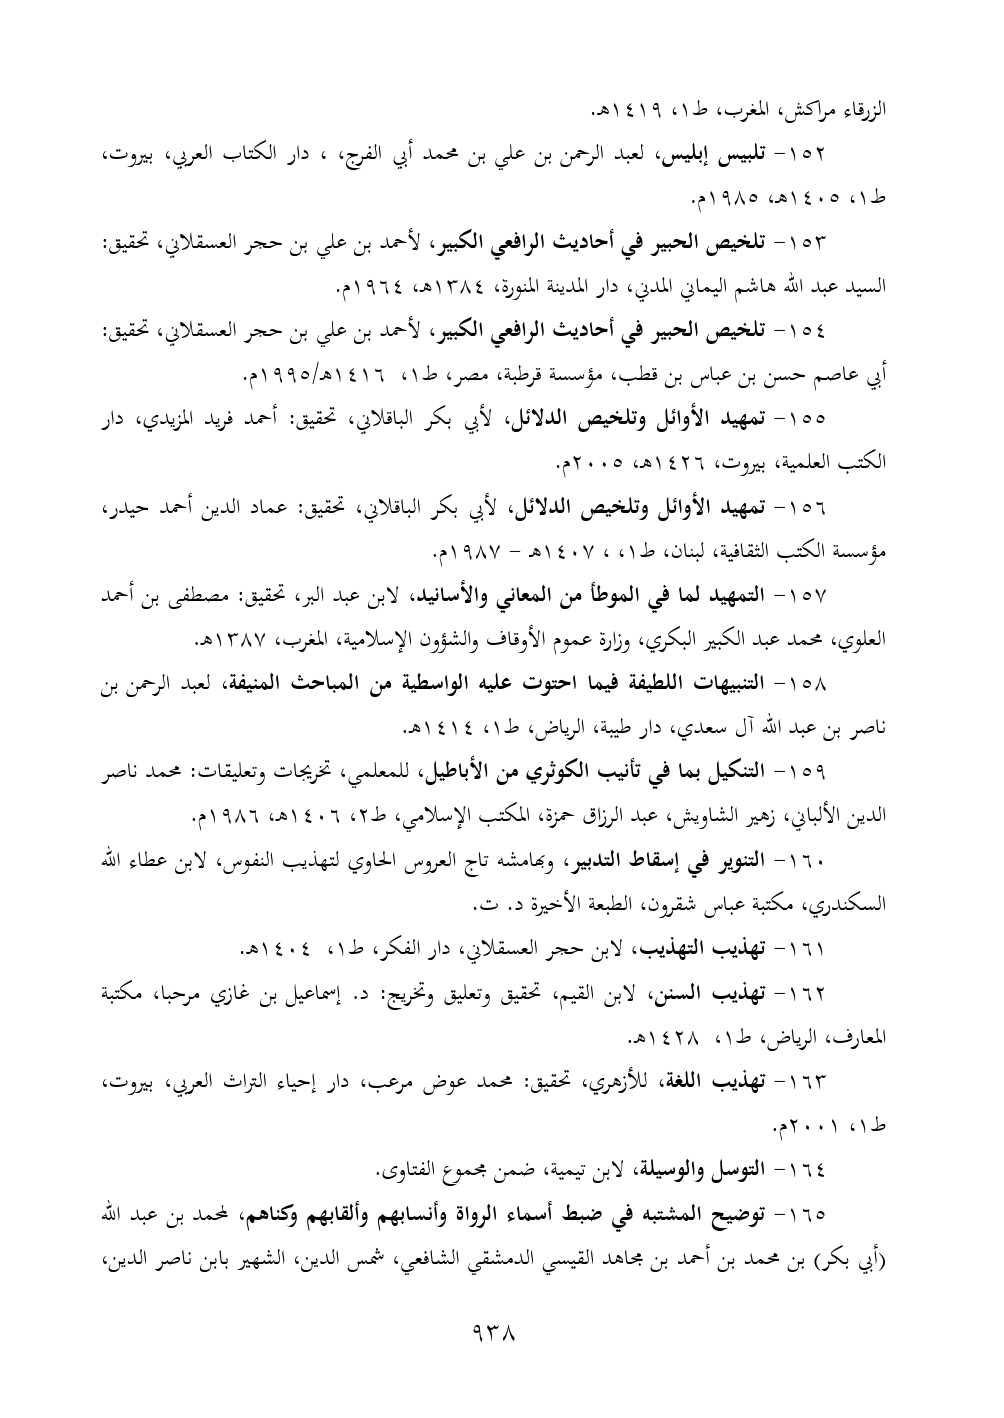 الزرقاء مراكش، المغرب، ط١، ١٤١٩هـ.
١٥٢- تلبيس إبليس، لعبد الرحمن بن علي بن محمد أبي الفرج، ، دار الكتاب العربي، بيروت،
ط١، ١٤٠٥هـ، ١٩٨٥م.
١٥٣- تلخيص الحبير في أحاديث الرافعي الكبير، لأحمد بن علي بن حجر العسقلاني، تحقيق:
السيد عبد الله هاشم اليماني المدني، دار المدينة المنورة، ١٣٨٤هـ، ١٩٦٤م.
١٥٤- تلخيص الحبير في أحاديث الرافعي الكبير، لأحمد بن علي بن حجر العسقلاني، تحقيق:
أبي عاصم حسن بن عباس بن قطب، مؤسسة قرطبة، مصر، ط١، ١٤١٦هـ/١٩٩٥م.
١٥٥- تمهيد الأوائل وتلخيص الدلائل، لأبي بكر الباقلاني، تحقيق: أحمد فريد المزيدي، دار
الكتب العلمية، بيروت، ١٤٢٦هـ، ٢٠٠٥م.
١٥٦- تمهيد الأوائل وتلخيص الدلائل، لأبي بكر الباقلاني، تحقيق: عماد الدين أحمد حيدر،
مؤسسة الكتب الثقافية، لبنان، ط١، ، ١٤٠٧هـ – ١٩٨٧م.
١٥٧- التمهيد لما في الموطأ من المعاني والأسانيد، لابن عبد البر، تحقيق: مصطفى بن أحمد
العلوي، محمد عبد الكبير البكري، وزارة عموم الأوقاف والشؤون الإسلامية، المغرب، ١٣٨٧هـ.
١٥٨- التنبيهات اللطيفة فيما احتوت عليه الواسطية من المباحث المنيفة، لعبد الرحمن بن
ناصر بن عبد الله آل سعدي، دار طيبة، الرياض، ط١، ١٤١٤هـ.
١٥٩- التنكيل بما في تأنيب الكوثري من الأباطيل، للمعلمي، تخريجات وتعليقات: محمد ناصر
الدين الألباني، زهير الشاويش، عبد الرزاق حمزة، المكتب الإسلامي، ط٢، ١٤٠٦هـ، ١٩٨٦م.
١٦٠- التنوير في إسقاط التدبير، وبهامشه تاج العروس الحاوي لتهذيب النفوس، لابن عطاء الله
السكندري، مكتبة عباس شقرون، الطبعة الأخيرة د. ت.
١٦١- تهذيب التهذيب، لابن حجر العسقلاني، دار الفكر، ط١، ١٤٠٤هـ.
١٦٢- تهذيب السنن، لابن القيم، تحقيق وتعليق وتخريج: د. إسماعيل بن غازي مرحبا، مكتبة
المعارف، الرياض، ط١، ١٤٢٨هـ.
١٦٣- تهذيب اللغة، للأزهري، تحقيق: محمد عوض مرعب، دار إحياء التراث العربي، بيروت،
ط١، ٢٠٠١م.
١٦٤- التوسل والوسيلة، لابن تيمية، ضمن مجموع الفتاوى.
١٦٥- توضيح المشتبه في ضبط أسماء الرواة وأنسابهم وألقابهم وكناهم، لمحمد بن عبد الله
(أبي بكر) بن محمد بن أحمد بن مجاهد القيسي الدمشقي الشافعي، شمس الدين، الشهير بابن ناصر الدين،
٩٣٨